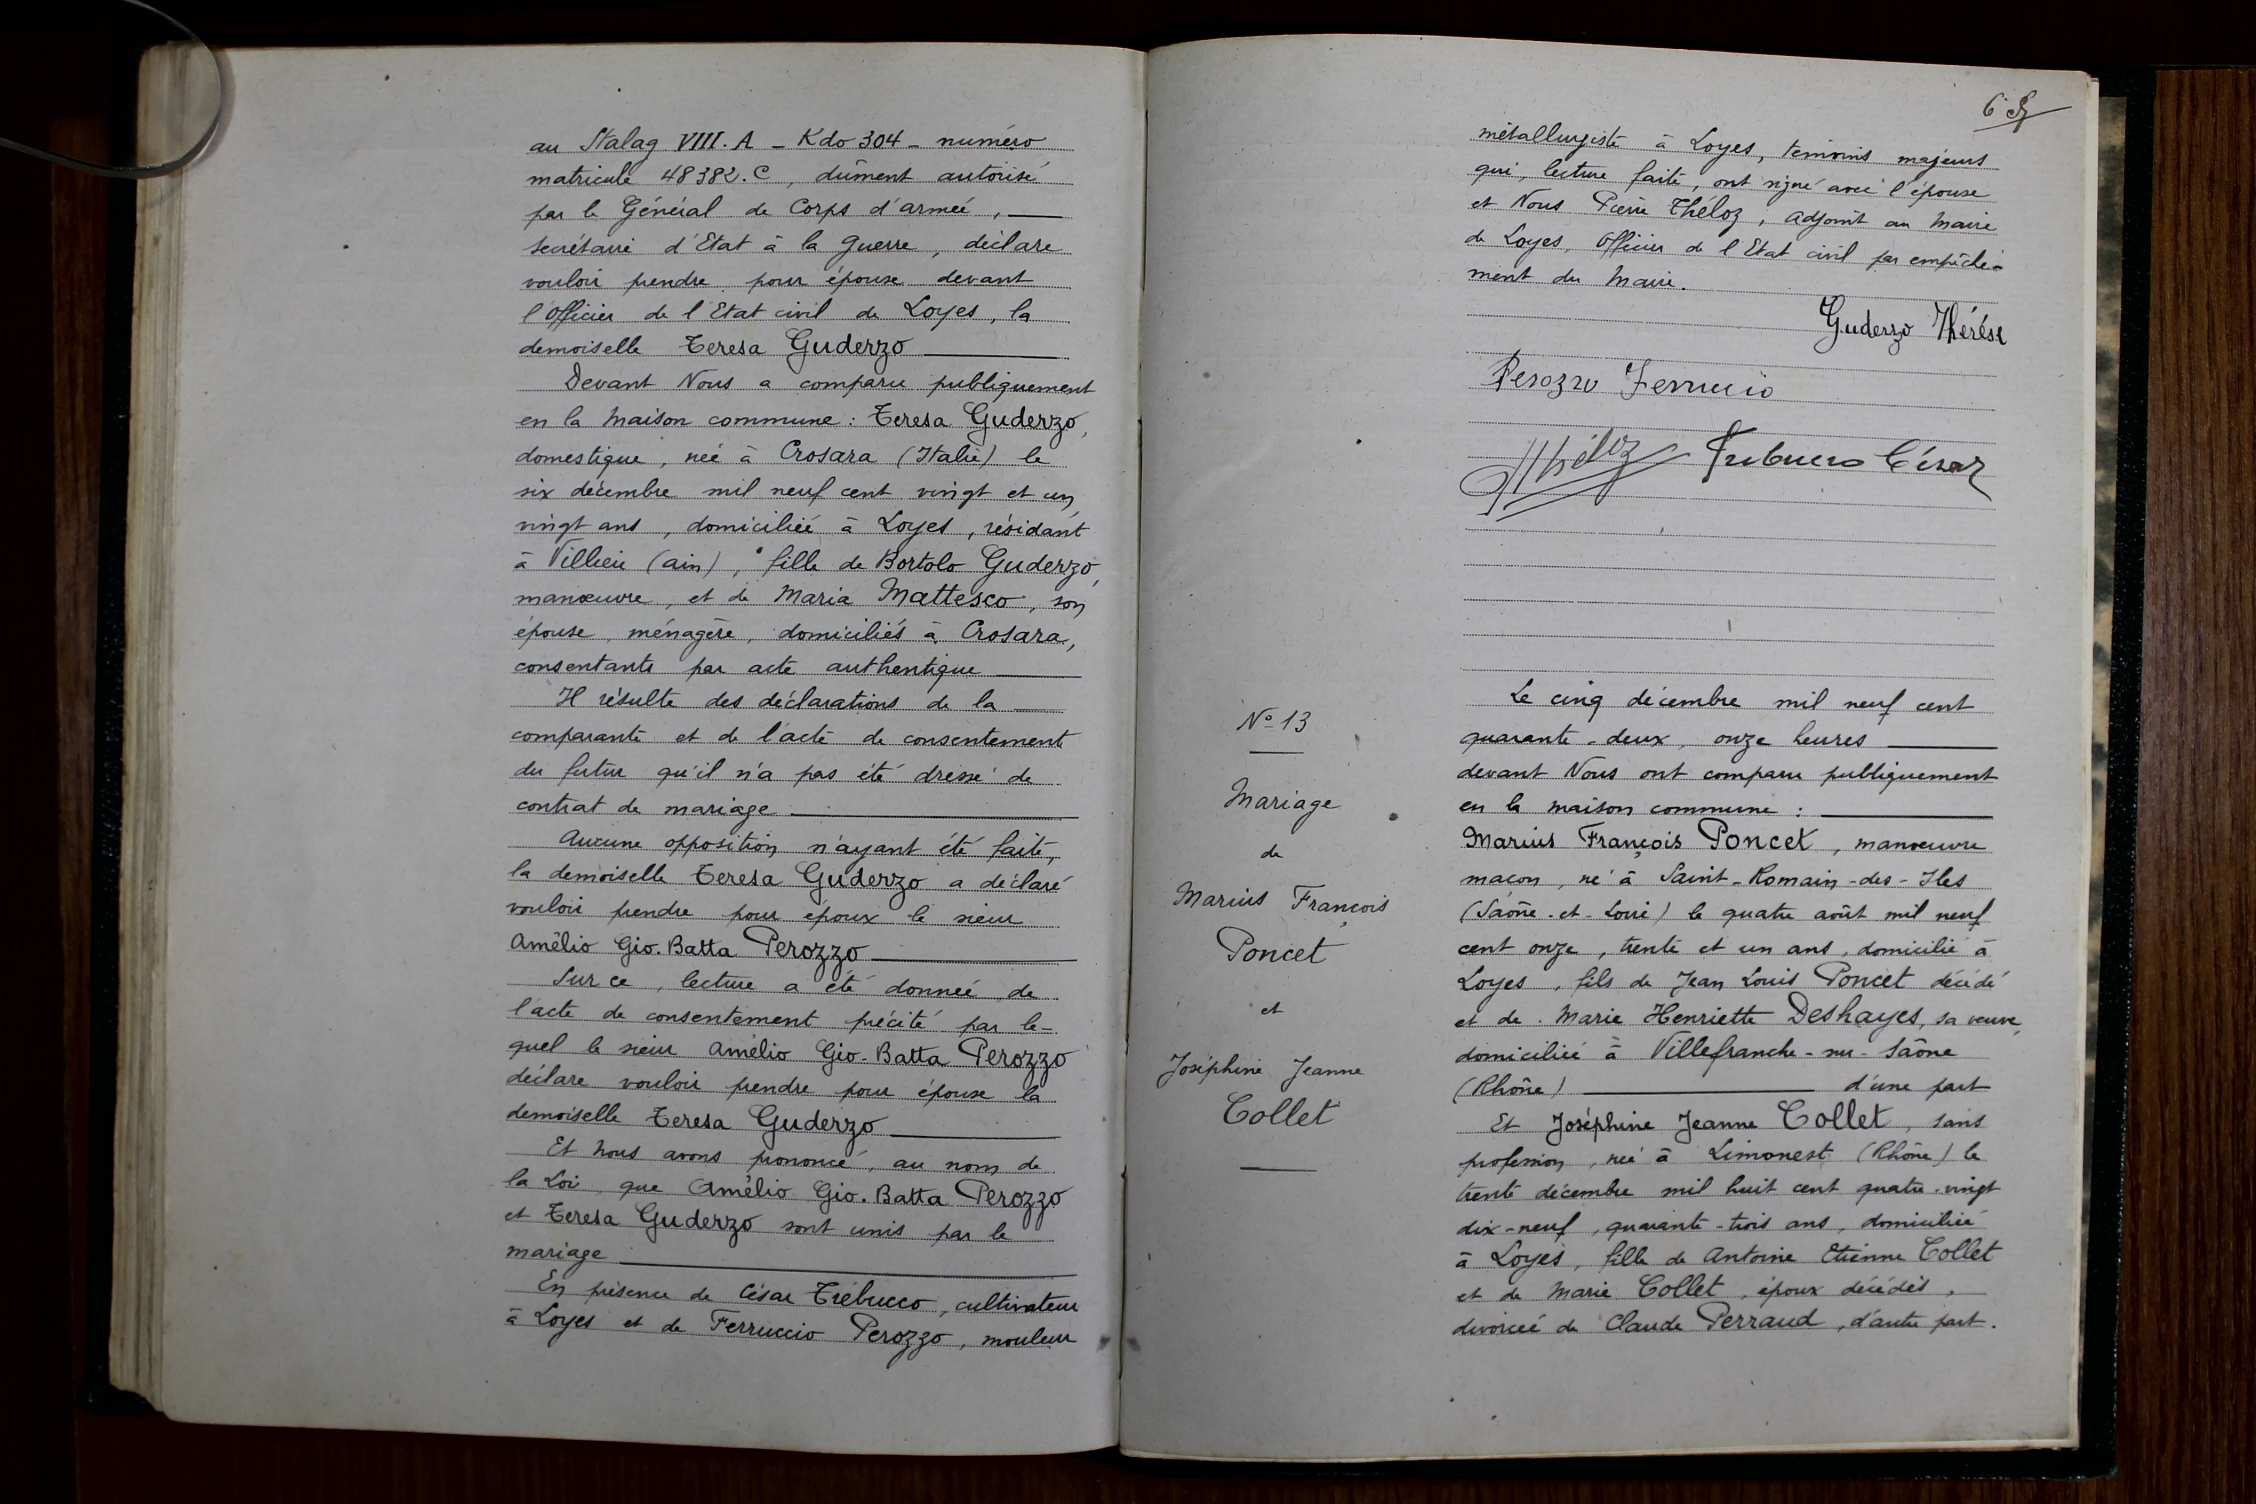 au Stalag VIII.A - Kdo 304 - numéro
matricule 48382.C, dûment autorisé
par le Général de Corps d'armée,
secrétaire d'Etat à la guerre, déclare
vouloir prendre pour épouse devant
l'officier de l'Etat civil de Loyes, la
demoiselle Teresa Guderzo
Devant Nous a comparu publiquement
en la maison commune : Teresa Guderzo,
domestique, née à Crosara (Italie) le
six décembre mil neuf cent vingt et un,
vingt ans, domiciliée à Loyes, résidant
à Villieu (ain), fille de Bortolo Guderzo,
manœuvre, et de Maria Mattesco, son
épouse, ménagère, domiciliés à Crosara,
consentants par acte authentique
Il résulte des déclarations de la
comparante et de l'acte de consentement
du futur qu'il n'a pas été dressé de
contrat de mariage
Aucune opposition n'ayant été faite,
la demoiselle Teresa Guderzo a déclaré
vouloir prendre pour époux le sieur
Amélio Gio. Batta Perozzo
Sur ce, lecture a été donnée de
l'acte de consentement précité par le-
quel le sieur Amélio Gio-Batta Perozzo
déclare vouloir prendre pour épouse la
demoiselle Teresa Guderzo
Et nous avons prononcé, au nom de
la Loi que Amélio Gio. Batta Perozzo
et Teresa Guderzo sont unis par le
mariage
En présence de César Trébucco, cultivateur
à Loyes et de Ferruccio Perozzo, mouleur
métallurgiste à Loyes, témoins majeurs
qui, lecture faite, ont signé avec l'épouse
et Nous Pierre Théloz, adjoint au maire
de Loyes, Officier de l'Etat civil par empêche-
ment du maire.
Guderzo Thérése
Perozzo Ferrucio
Théloz Trebucco César
N° 13
Mariage
de
Marius François
Poncet
et
Joséphine Jeanne
Collet
Le cinq décembre mil neuf cent
quarante-deux, onze heures
devant Nous ont comparu publiquement
en la maison commune :
Marius François Poncet, manœuvre
maçon, né à Saint-Romain-des-Iles
(Saône-et-Loire) le quatre août mil neuf
cent onze, trente et un ans, domicilié à
Loyes, fils de Jean Louis Poncet décédé
et de Marie Henriette Deshayes, sa veuve,
domiciliée à Villefranche-sur-Saône
(Rhône) d'une part
Et Joséphine Jeanne Collet, sans
profession, née à Limonest (Rhône) le
trente décembre mil huit cent quatre-vingt
dix-neuf, quarante-trois ans, domiciliée
à Loyes, fille de Antoine Etienne Collet
et de Marie Collet, époux décédés,
divorcée de Claude Perraud, d'autre part.